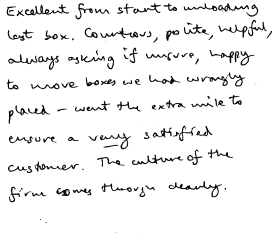 Excellent from start to unloading
last box. Courteous, polite, helpful,
always asking if unsure, happy
to move boxes we had wrongly
placed - went the extra mile to
ensure a very satisfied
customer. The culture of the
firm comes through clearly.